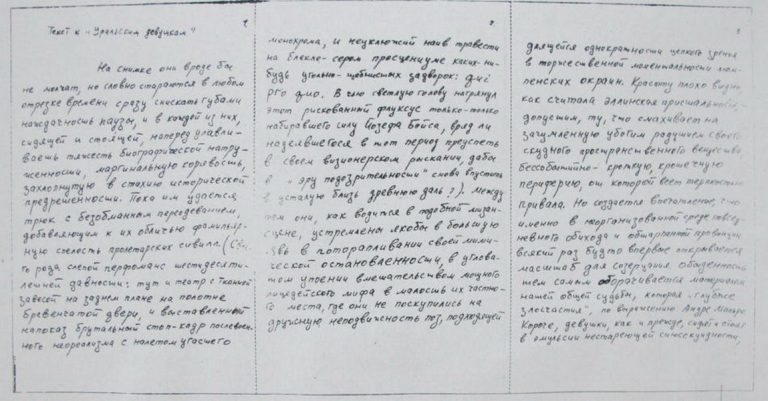 1
Текст к "Уральским девушкам"
На снимке они вроде бы
не молчат, но словно стараются в любом
отрезке времени сразу сыскать губами
наждачность паузы, и в каждой из них,
сидящей и стоящей, наперёд улавли-
ваешь тяжесть биографической нагру-
женности, маргинальную горявость,
захлопнутую в стихию исторической
предрешенности. Пока им удаётся
трюк с безобманным переодеванием,
добавляющим к их обличью фамильяр-
ную спелость пролетарских сивилл.
рода слепой перфоманс шестидесяти-
летней давности: тут и театр с тканной
завесой на заднем плане на полотне
бревенчатой двери, и выставленный
напоказ брутальный стоп-кадр послевоен-
ного неореализма с налётом угасшего
2
монохрома, и неуклюжий наив травести
на блекло-сером просцениуме каких-ни-
будь угольно-щебнистых задворок:
В чью светлую голову нагрянул
этот рискованный флуксус только-только
набиравшего силу Йозефа Бойса, вряд ли
надеявшегося в тот период преуспеть
в своём визионерском рыскании, дабы
в "эру подозрительности" снова впустить
в усталую близь древнюю даль?). Между
тем они, как водится в подобной мизан-
сцене, устремлены якобы в большую
явь в поторапливании своей мими-
ческой остановленности, в углова-
том упоении вмешательством мощного
лицедейского мифа в малость их частно-
го места, где они не поскупились на
дружную неподвижность поз, подходящей
3
длящейся однократности цепкого зренья
в торжественной моментальности люм-
пенских окраин. Красоту плохо видно,
как считала эллинская присциальность,
допустим, ту, что смахивает на
зачумленную убогим радушием своего
скудного вещества
бессобытийно-кроткую, крошечную
периферию, от которой веет терпкостью
привала. Но создаётся впечатление, что
именно в неорганизованной среде повсед-
невного обихода и обшарпанной провинции
всякий раз будто впервые открывается
масштаб для созерцания обыденности
тем самым оборачивается материалом
нашей общей судьбы, которая "глубже
злосчастия", по выражению Андре Мальро.
Короче, девушки, как и прежде, сидят и стоят
в эмульсии нестареющей сиюсекундности,